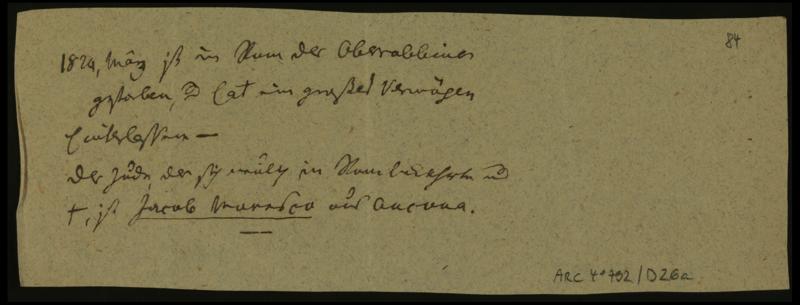 84
1824, März ist in Rom der Oberrabbiner
gestorben, u hat ein großes Vermögen
hinterlassen —
Der Jude, der sich neulich in Rom bekehrte und
†, ist Jacob aus Ancona.
ARC 4° 792/D26a